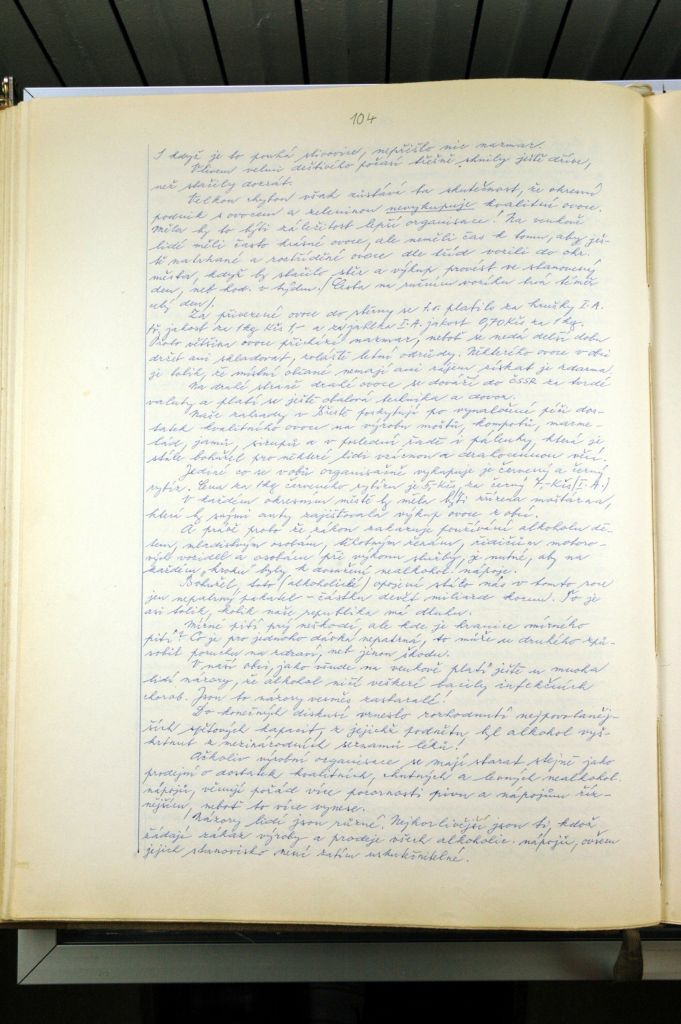 104
I když je to pouhá slivovice, nepřišlo nic nazmar.
Vlivem velmi deštivého počasí třešně shnily ještě dříve,
než stačily dozrát.
Velkou chybou však zůstává ta skutečnost, že okresní
podnik s ovocem a zeleninou nevykupuje kvalitní ovoce.
Měla by to býti záležitost lepší organisace! Na venkově
lidé měli často krásné ovoce, ale neměli čas k tomu, aby ješ-
tě natrhané a roztříděné ovoce dle tříd vozili do okr.
města, když by stačilo sběr a výkup provést ve stanovený
den, neb hod. v týdnu. (Cesta na ručním vozíku trvá téměř
celý den).
Za přivezené ovoce do sběrny se t.r. platilo za hrušky I.A.
tř. jakost za 1kg Kčs 1,- a za jablka I.A. jakost 0,70 Kčs za 1 kg.
Proto většina ovoce přichází nazmar, neboť se nedá delší dobu
držet ani skladovat, zvláště letní odrůdy. Některého ovoce v obci
je tolik, že místní občané nemají ani zájem získat je zdarma.
Na druhé straně drahé ovoce se dováží do ČSSR za tvrdé
valuty a platí se ještě obalová technika a dovoz.
Naše zahrady v Břestě poskytují po vynaložené péči dos-
tatek kvalitního ovoce na výrobu moštů, kompotů, marme-
lád, jamů, sirupů a v poslední řadě i pálenky, která je
stále bohužel pro některé lidi vzácnou a drahocennou věcí.
Jediné co se v obci organisačně vykupuje je červený a černý
rybíz. Cena za 1kg červeného rybízu je 5,-Kčs, za černý 7,-Kčs (I.A.)
V každém okresním městě by měla býti zřízena moštárna,
která by svými auty zajišťovala výkup ovoce z obcí.
A právě proto že zákon zakazuje používání alkoholu dě-
tem, mladistvým osobám, těhotným ženám, řidičům motoro-
vých vozidel a osobám při výkonu služby, je nutné, aby na
každém kroku byly k dosažení nealkohol. nápoje.
Bohužel, toto (alkoholické) opojení stálo nás v tomto roce
jen nepatrný pakatel – částku devět miliard korun. To je
asi tolik, kolik naše republika má dluhu.
Mírné pití prý neškodí, ale kde je hranice mírného
pití? Co je pro jednoho dávka nepatrná, to může u druhého způ-
sobit poruchu na zdraví, neb jinou škodu.
V naší obci, jako všude na venkově platí ještě u mnoha
lidí názory, že alkohol ničí veškeré bacily infekčních
chorob. Jsou to názory vesměs zastaralé!
Do konečných diskusí vneslo rozhodnutí nejpovolaněj-
ších světových kapacit, z jejichž podnětu, byl alkohol vyš-
krtnut z mezinárodních seznamů léků!
Ačkoliv výrobní organisace se mají starat stejně jako
prodejní o dostatek kvalitních, chutných a levných nealkohol.
nápojů, věnují pořád více pozornosti pivu a nápojům říz-
nějším, neboť to více vynese.
Názory lidí jsou různé. Nejhorlivější jsou ti, kdož
žádají zákaz výroby a prodeje všech alkoholic. nápojů, ovšem
jejich stanovisko není zatím uskutečnitelné.